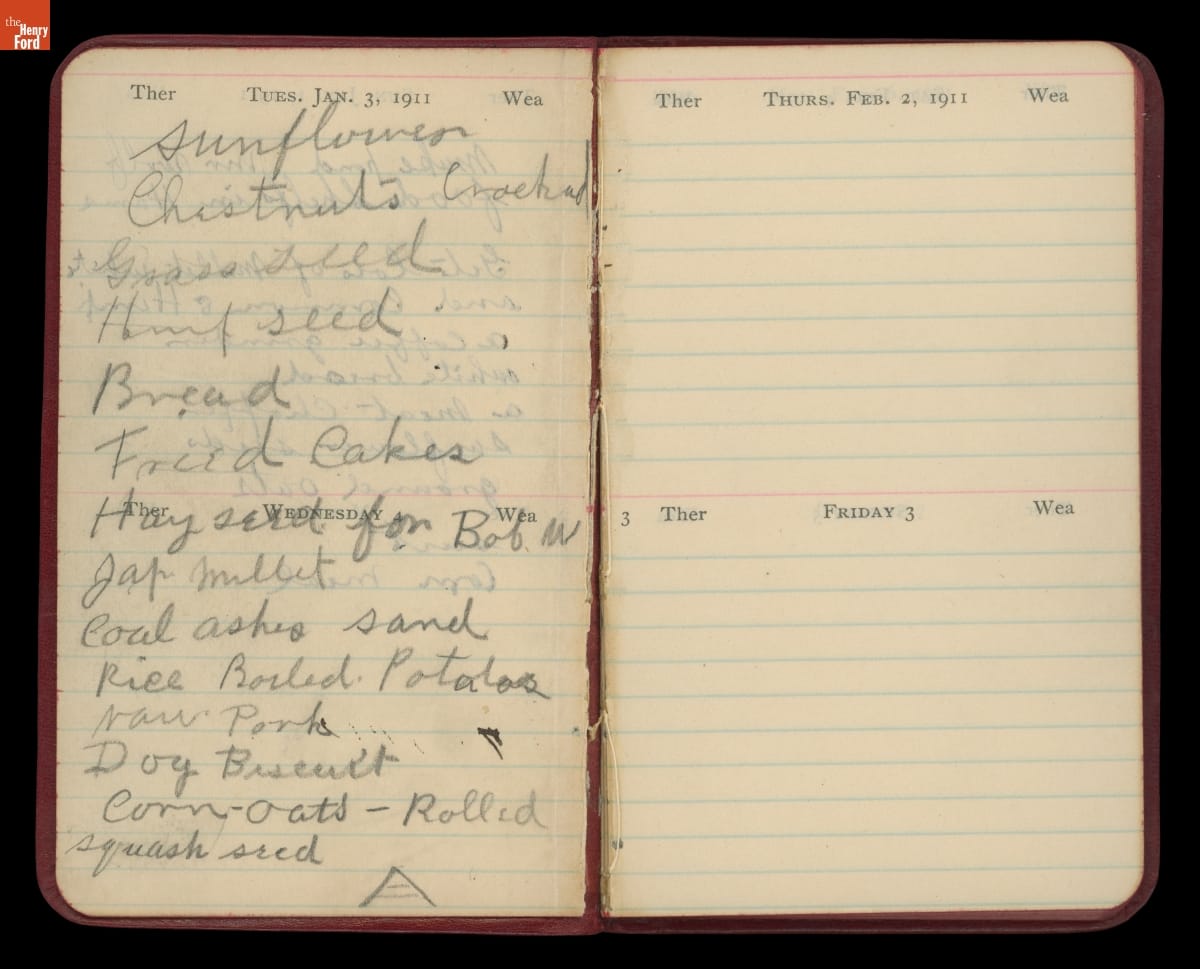 the
Henry
Ford
Ther TUES. JAN. 3, 1911 Wea
sunflower
Chestnuts Cracked
Grass seed
Hemp seed
Bread
Fried Cakes
Ther WEDNESDAY 4 Wea
Hay seed for Bob W
Jap millet
Coal ashes sand
Rice Boiled Potatoes
raw Pork
Dog Biscuit
Corn-oats - Rolled
squash seed
Ther THURS. FEB. 2, 1911 Wea
3 Ther FRIDAY 3 Wea